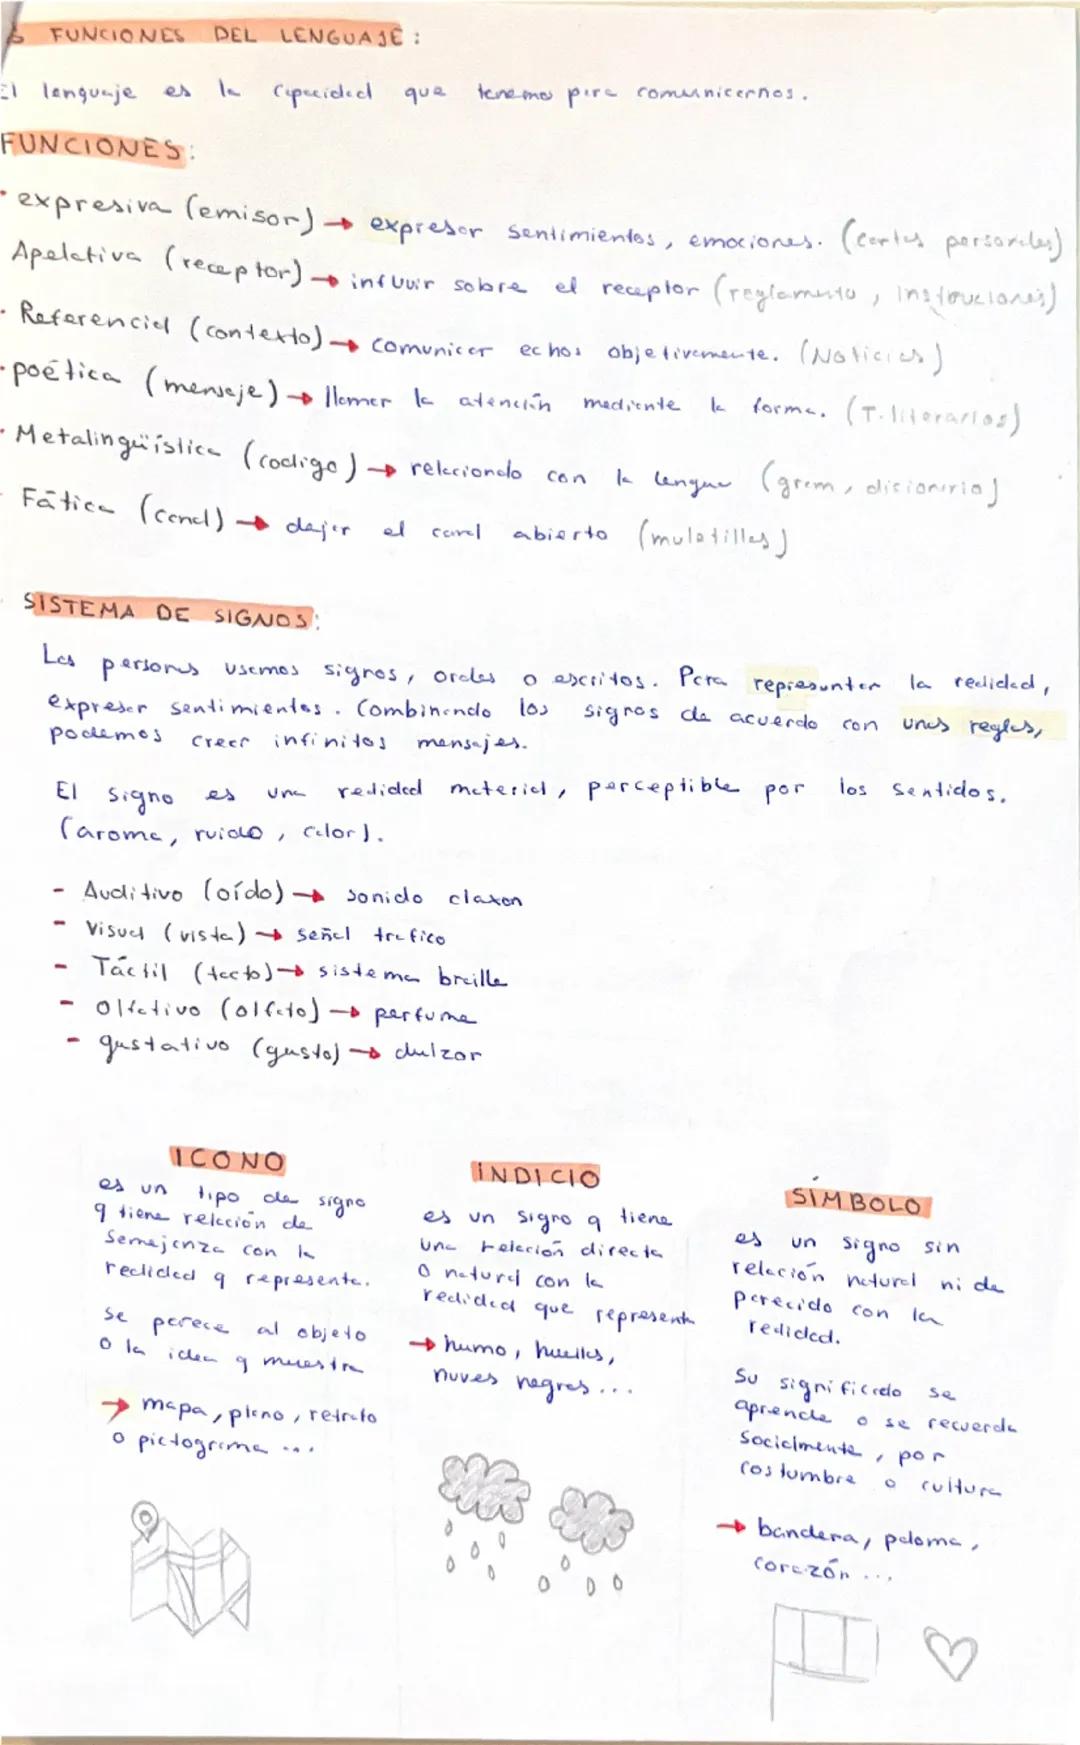 FUNCIONES DEL LENGUAJE:
El lenguaje es la capacidad que tenemos para comunicarnos.
FUNCIONES:
· expresiva (emisor) → expresar sentimientos, emociones. (cartas personales)
Apelativa (receptor) → infuuir sobre el receptor (reglamento, instrucciones)
· Referencial (contexto) → comunicar echos objetivamente. (Noticias)
· poética (mensaje) → llamar la atención mediante la forma. (T. literarios)
· Metalingüística (codigo) → relacionado con la lengua (gram, dicionario)
· Fática (canal) → dejar el canal abierto (muletillas)
SISTEMA DE SIGNOS:
Las personas usamos signos, orales o escritos. Para representar la realidad,
expresar sentimientos. Combinando los signos de acuerdo con unas reglas,
podemos crear infinitos mensajes.
El signo es una realidad material, perceptible por los sentidos.
(aroma, ruido, calor).
- Auditivo (oído) → sonido claxon
- Visual (vista) → señal trafico
- Táctil (tacto) → sistema braille
- Olfativo (olfato) → perfume
- gustativo (gusto) → dulzor
ICONO
es un tipo de signo
q tiene relación de
semejanza con la
realidad q representa.
Se parece al objeto
o la idea q muestra
→ mapa, plano, retrato
o pictograma ...
INDICIO
es un signo q tiene
una relación directa
o natural con la
realidad que representa
→ humo, huellas,
nuves negras...
SÍMBOLO
es un signo sin
relación natural ni de
parecido con la
realidad.
Su significado se
aprende o se recuerda
socialmente, por
costumbre o cultura
→ bandera, paloma,
corazón ...